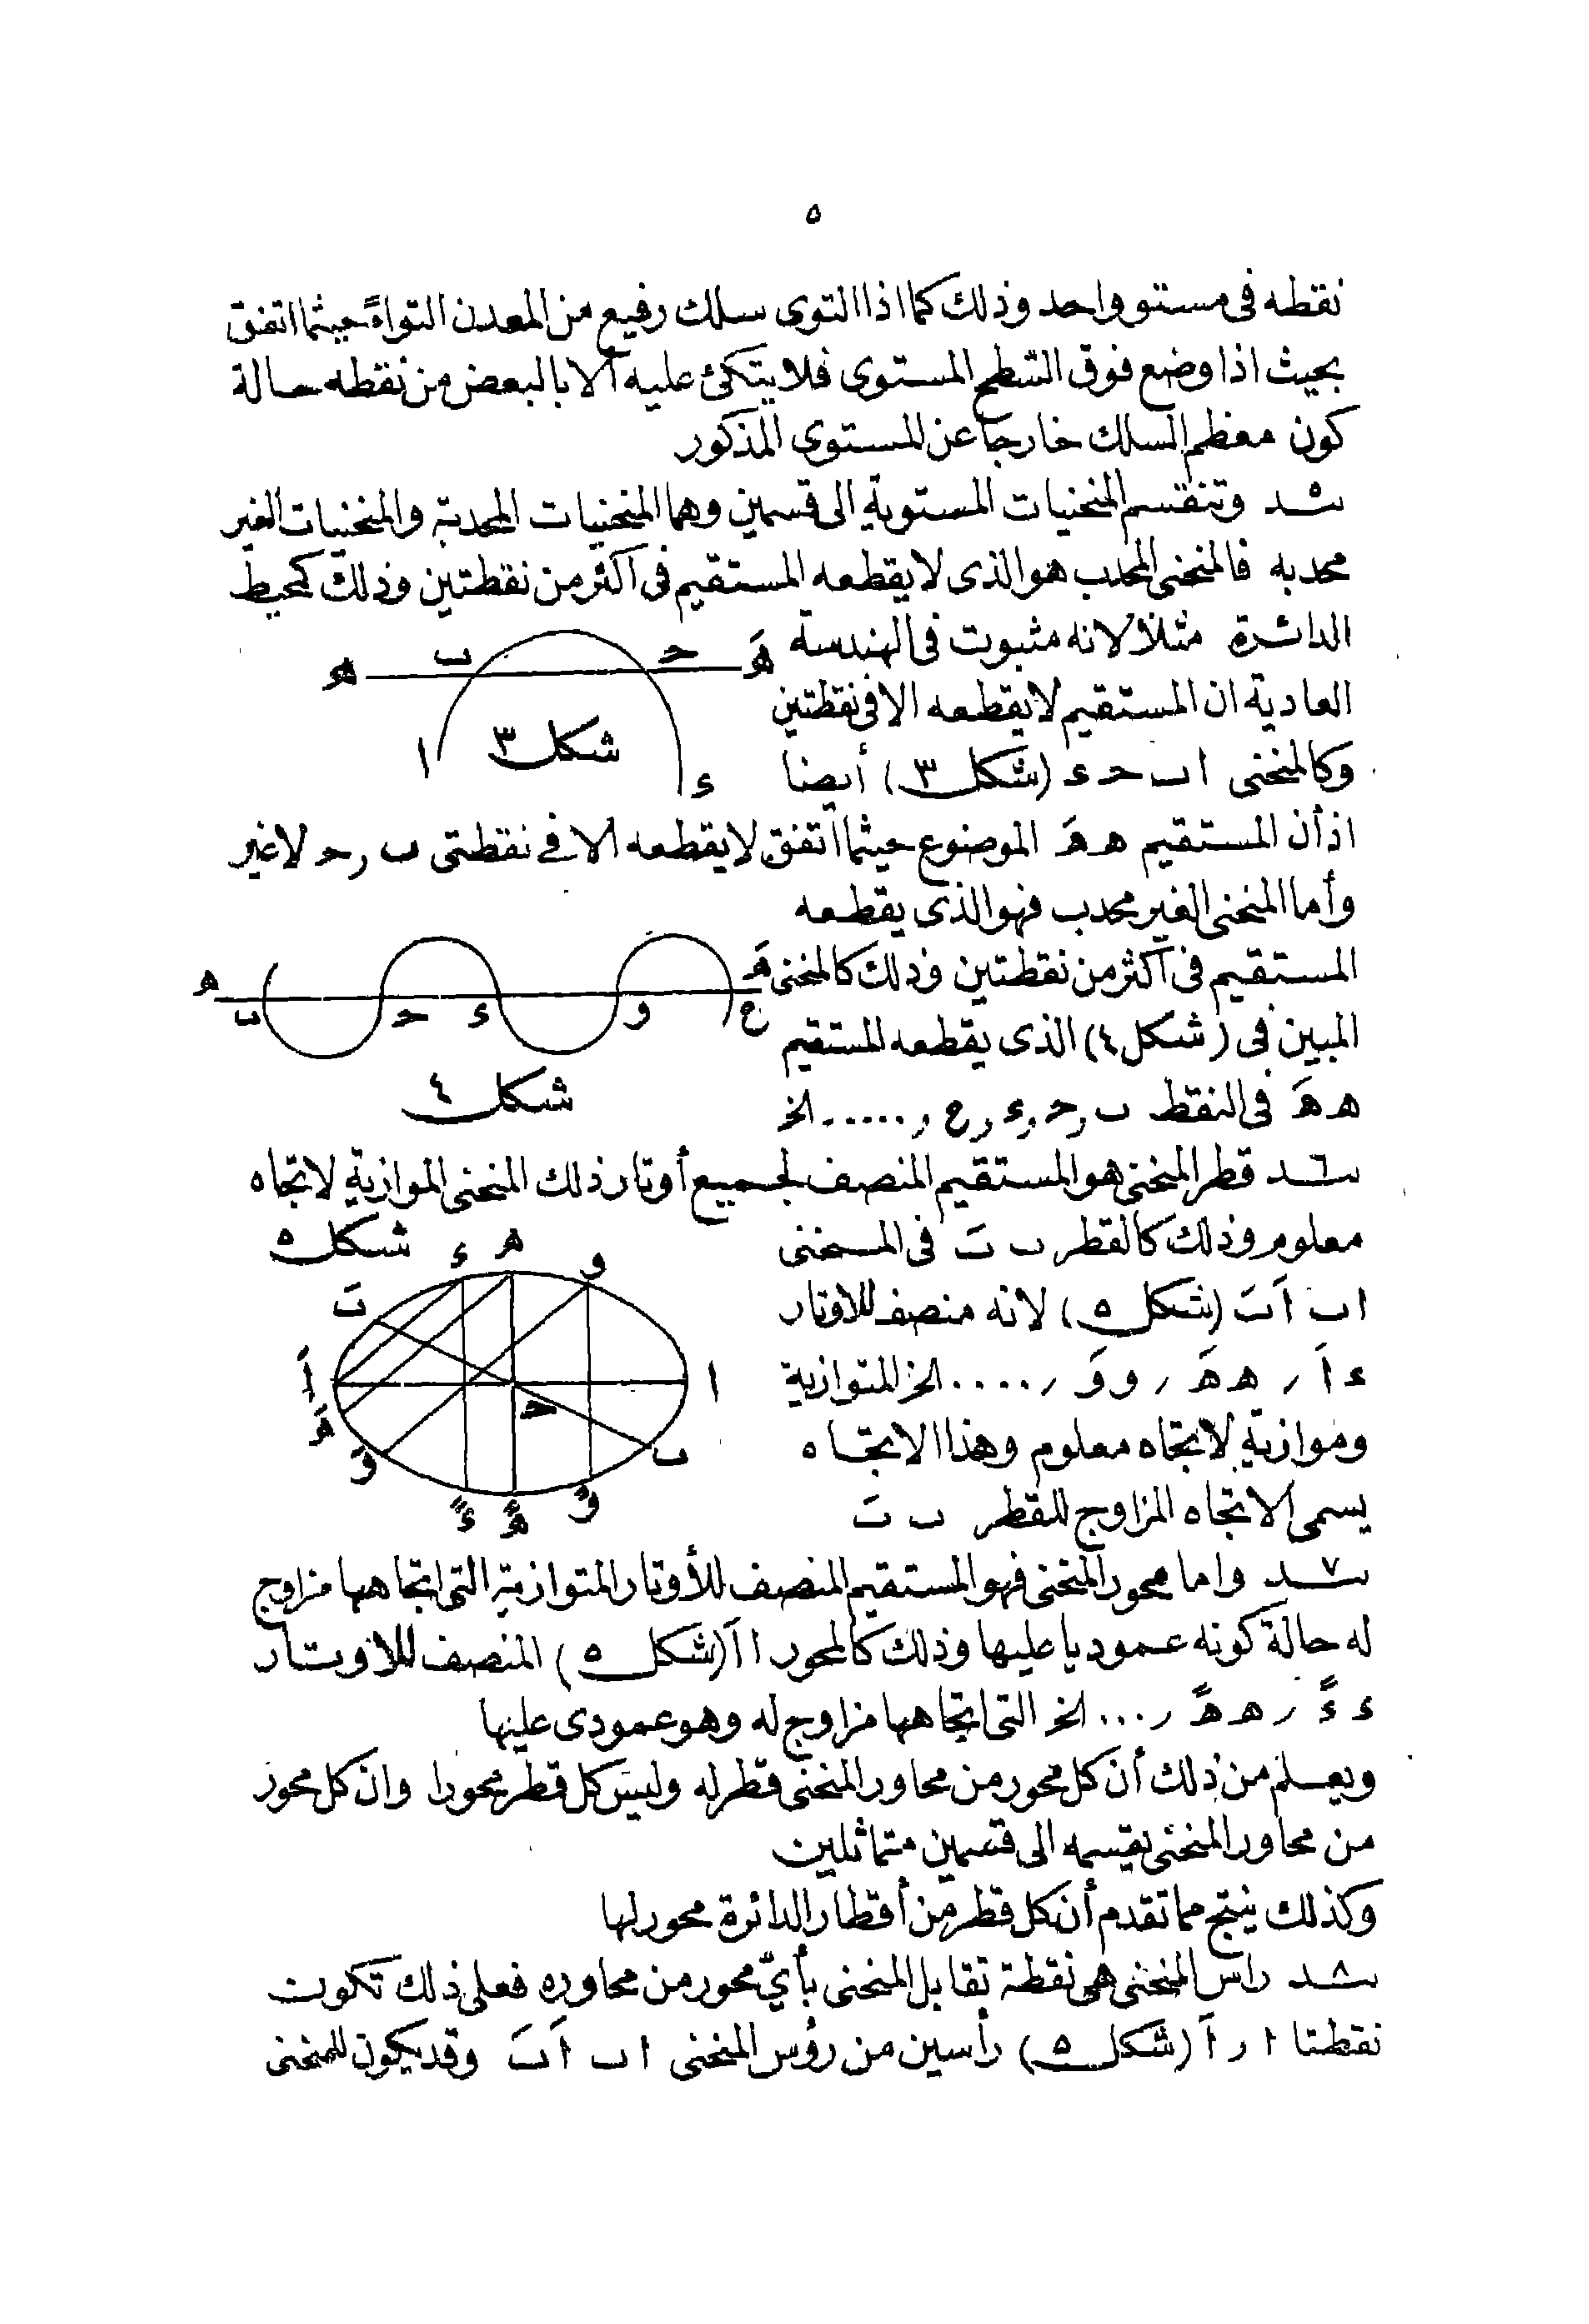 ٥
نقطه فى مستو واحد وذلك كما اذا التوى سلك رفيع من المعدن التواءً حيثما اتفق
بحيث اذا وضع فوق السطح المستوى فلا يتكئ عليه الا بالبعض من نقطه حالة
كون معظم السلك خارجا عن المستوى المذكور
٥ـــد وتنقسم المنحنيات المستوية الى قسمين وهما المنحنيات المحدبة والمنحنيات الغير
محدبه فالمنحنى المحدب هو الذى لا يقطعه المستقيم فى اكثر من نقطتين وذلك كمحيط
الدائرة مثلا لانه مثبوت فى الهندسة
العادية ان المستقيم لا يقطعه الا فى نقطتين
وكالمنحنى ا ب حـ ء (شكل ٣) أيضا
ه ب حـ هَ
ا شكل ٣ ء
اذ أن المستقيم ه هَ الموضوع حيثما اتفق لا يقطعه الا فى نقطتى ب ر حـ لا غير
وأما المنحنى الغير محدب فهو الذى يقطعه
المستقيم فى اكثر من نقطتين وذلك كالمنحنى
المبين فى (شكل ٤) الذى يقطعه المستقيم
ه هَ فى النقط ب ر حـ ر ء ر ع ر ...... الخ
ه ب حـ ء و ع هَ
شكل ٤
٦ـــد قطر المنحنى هو المستقيم المنصف لجميع أوتار ذلك المنحنى الموازية لاتجاه
معلوم وذلك كالقطر ب بَ فى المنحنى
ا ب اَ بَ (شكل ٥) لانه منصف للاوتار
ء اَ ر ه هَ ر و وَ ر .... الخ المتوازية
وموازية لاتجاه معلوم وهذا الاتجاه
يسمى الاتجاه المزاوج للقطر ب بَ
شكل ٥
ء ه و
بَ
اَ ا
حـ
هَ
وَ ب
ءً هً وً
٧ـــد واما محور المنحنى فهو المستقيم المنصف للأوتار المتوازية التى اتجاهها مزاوج
له حالة كونه عموديا عليها وذلك كالمحور ا اَ (شكل ٥) المنصف للاوتار
ء ءً ر ه هً ر ... الخ التى اتجاهها مزاوج له وهو عمودى عليها
ويعلم من ذلك أن كل محور من محاور المنحنى قطر له وليس كل قطر محورا وان كل محور
من محاور المنحنى يقسمه الى قسمين متماثلين
وكذلك ينتج مما تقدم أن كل قطر من أقطار الدائرة محور لها
٨ـــد راس المنحنى هى نقطة تقابل المنحنى بأيّ محور من محاوره فعلى ذلك تكون
نقطتا ا ر اَ (شكل ٥) رأسين من رؤس المنحنى ا ب اَ بَ وقد يكون للمنحنى